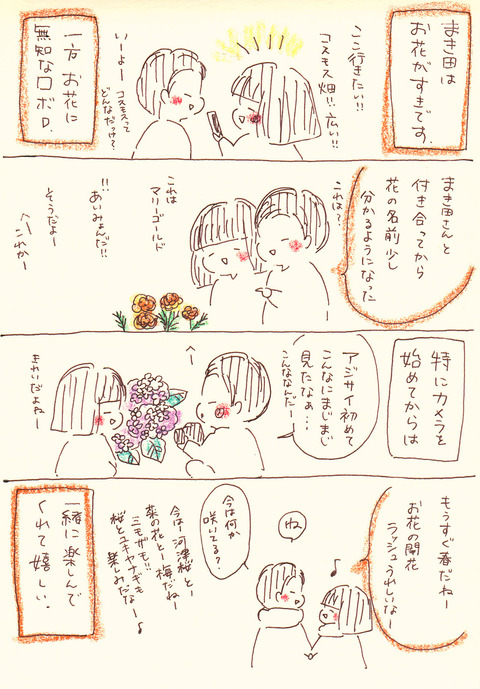 まき田は
お花がすきです.
ここ行きたい!!
コスモス畑!! 広い!!
いーよー
コスモスって
どんなだっけ?
一方 お花に
無知なロボロ.
まき田さんと
付き合ってから
花の名前少し
分かるようになった
これは?
これは
マリーゴールド
!!
あいみょんだ!!
そうだよー
へーこれかー
特にカメラを
始めてからは
アジサイ初めて
こんなにまじまじ
見たなぁ…
こんなんだー
へー
きれいだよねー
もうすぐ春だねー
お花の開花
ラッシュうれしいなー
ね
今は何か
咲いてる?
今は河津桜とー
菜の花とー梅だねー
ミモザも!!
桜とユキヤナギも
楽しみだなー♪
一緒に楽しんで
くれて嬉しい.